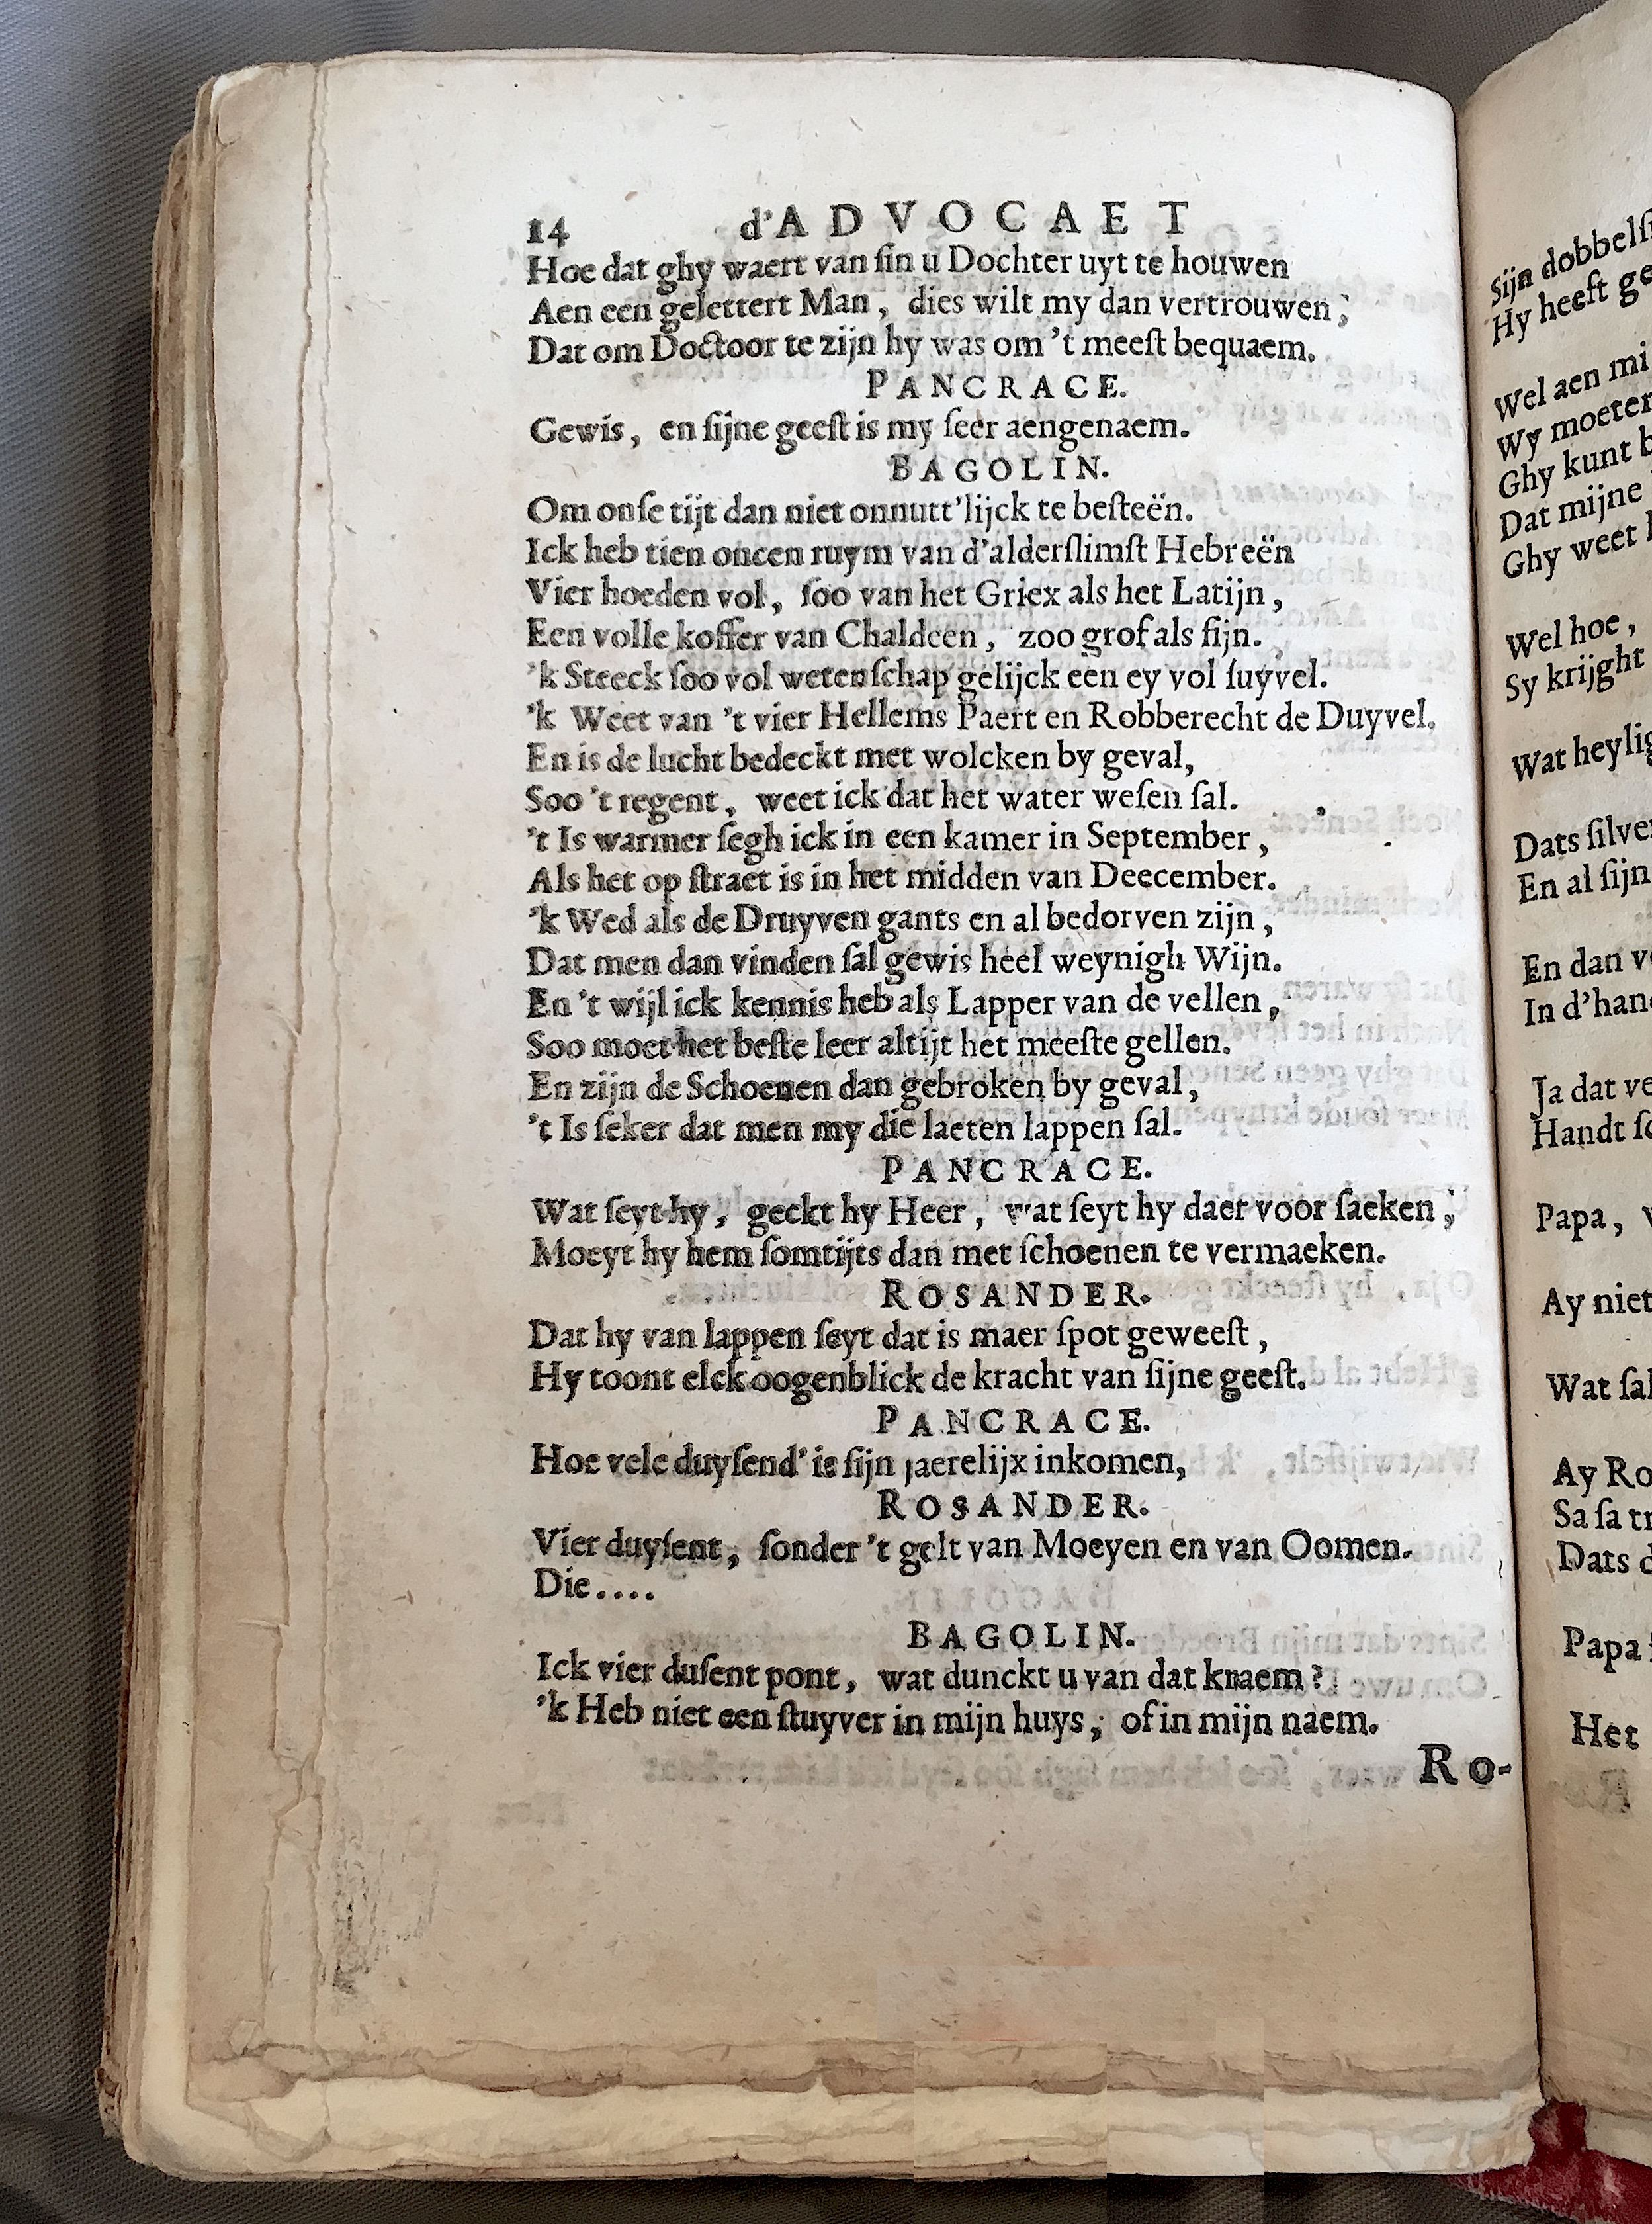 14 d'ADVOCAET
Hoe dat ghy waert van ſin u Dochter uyt te houwen
Aen een gelettert Man, dies wilt my dan vertrouwen;
Dat om Doctoor te zijn hy was om 't meeſt bequaem.
PANCRACE.
Gewis, en ſijne geeſt is my ſeer aengenaem.
BAGOLIN.
Om onſe tijt dan niet onnutt'lijck te beſteën.
Ick heb tien oncen ruym van d'alderſlimſt Hebreën
Vier hoeden vol, ſoo van het Griex als het Latijn,
Een volle koffer van Chaldeen, zoo grof als fijn.
'k Steeck ſoo vol wetenſchap gelijck een ey vol ſuyvel.
'k Weet van 't vier Hellems Paert en Robberecht de Duyvel.
En is de lucht bedeckt met wolcken by geval,
Soo 't regent, weet ick dat het water weſen ſal.
't Is warmer ſegh ick in een kamer in September,
Als het op ſtraet is in het midden van Deecember.
'k Wed als de Druyven gants en al bedorven zijn,
Dat men dan vinden ſal gewis heel weynigh Wijn.
En 't wijl ick kennis heb als Lapper van de vellen,
Soo moet het beſte leer altijt het meeſte gellen.
En zijn de Schoenen dan gebroken by geval,
't Is ſeker dat men my die laeten lappen ſal.
PANCRACE.
Wat ſeyt hy, geckt hy Heer, wat ſeyt hy daer voor ſaeken;
Moeyt hy hem ſomtijts dan met ſchoenen te vermaeken.
ROSANDER.
Dat hy van lappen ſeyt dat is maer ſpot geweeſt,
Hy toont elck oogenblick de kracht van ſijne geeſt.
PANCRACE.
Hoe vele duyſend' is ſijn jaerelijx inkomen,
ROSANDER.
Vier duyſent, ſonder 't gelt van Moeyen en van Oomen.
Die....
BAGOLIN.
Ick vier duſent pont, wat dunckt u van dat kraem?
'k Heb niet een ſtuyver in mijn huys, of in mijn naem.
Ro-
Hy heeft
Wel aen
Wy
Ghy kunt
Dat mijne
Ghy weet
Wel hoe,
Sy krijght
Dats
En al ſijn
En dan
Ja dat
Handt
Papa,
Ay niet
Wat
Ay
Sa ſa
Dats
Papa
Het